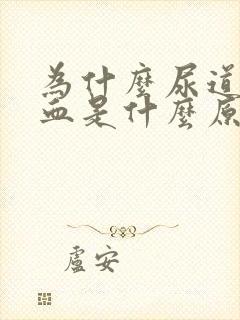 為什麼尿道
血是什麼原
盧安